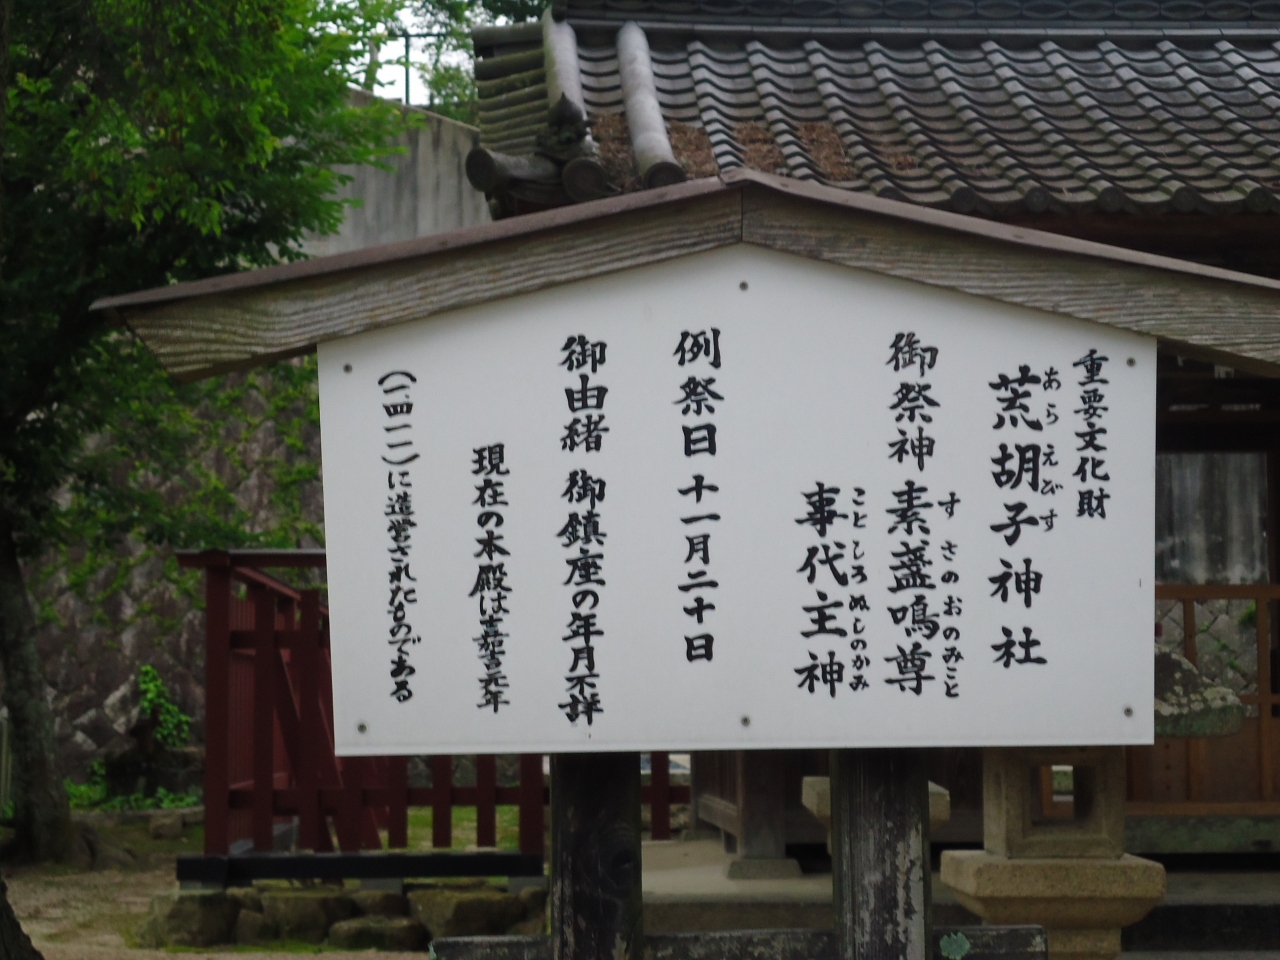 重要文化財
荒胡子神社
あらえびす
御祭神 素盞鳴尊
すさのおのみこと
事代主神
ことしろぬしのかみ
例祭日 十一月二十日
御由緒 御鎮座の年月不詳
現在の本殿は嘉吉元年
(一四一一)に造営されたものである